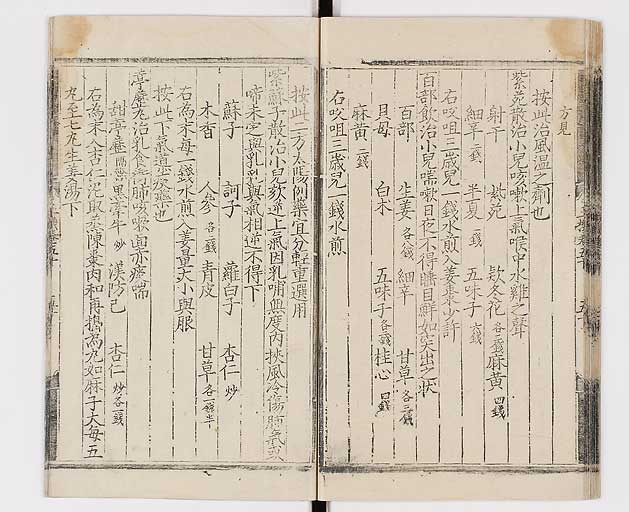 方見
按此治風温之劑也
紫菀散治小兒咳嗽上氣喉中水雞之聲
射干 紫菀 欵冬花 各二錢 麻黃 四錢
細辛 二錢 半夏 一錢 五味子 六錢
右㕮咀三歲兒一錢水煎入姜棗少許
百部飮治小兒喘嗽日夜不得睡目鮮如突出之狀
百部 生姜 各錢 細辛 甘草 各三錢
貝母 白朮 五味子 各錢 桂心 四錢
麻黃 二錢
右㕮咀三歲兒一錢水煎
按此二方太陽例藥宜分輕重選用
紫蘇子散治小兒欬逆上氣因乳哺無度內挾風冷傷肺氣或
啼未定與乳乳與氣相逆不得下
蘇子 訶子 蘿白子 杏仁 炒
木香 人參 各二錢 青皮 甘草 各一錢半
右為末每一錢水煎入姜量大小與服
按此下氣道
葶藶丸治乳食傷肺咳嗽面赤痰喘
甜葶藶 隔 黑牽牛 炒 漢防己 杏仁 炒各一錢
右為末入杏仁泥取蒸陳棗肉和再擣為丸如麻子大每五
丸至七丸生姜湯下